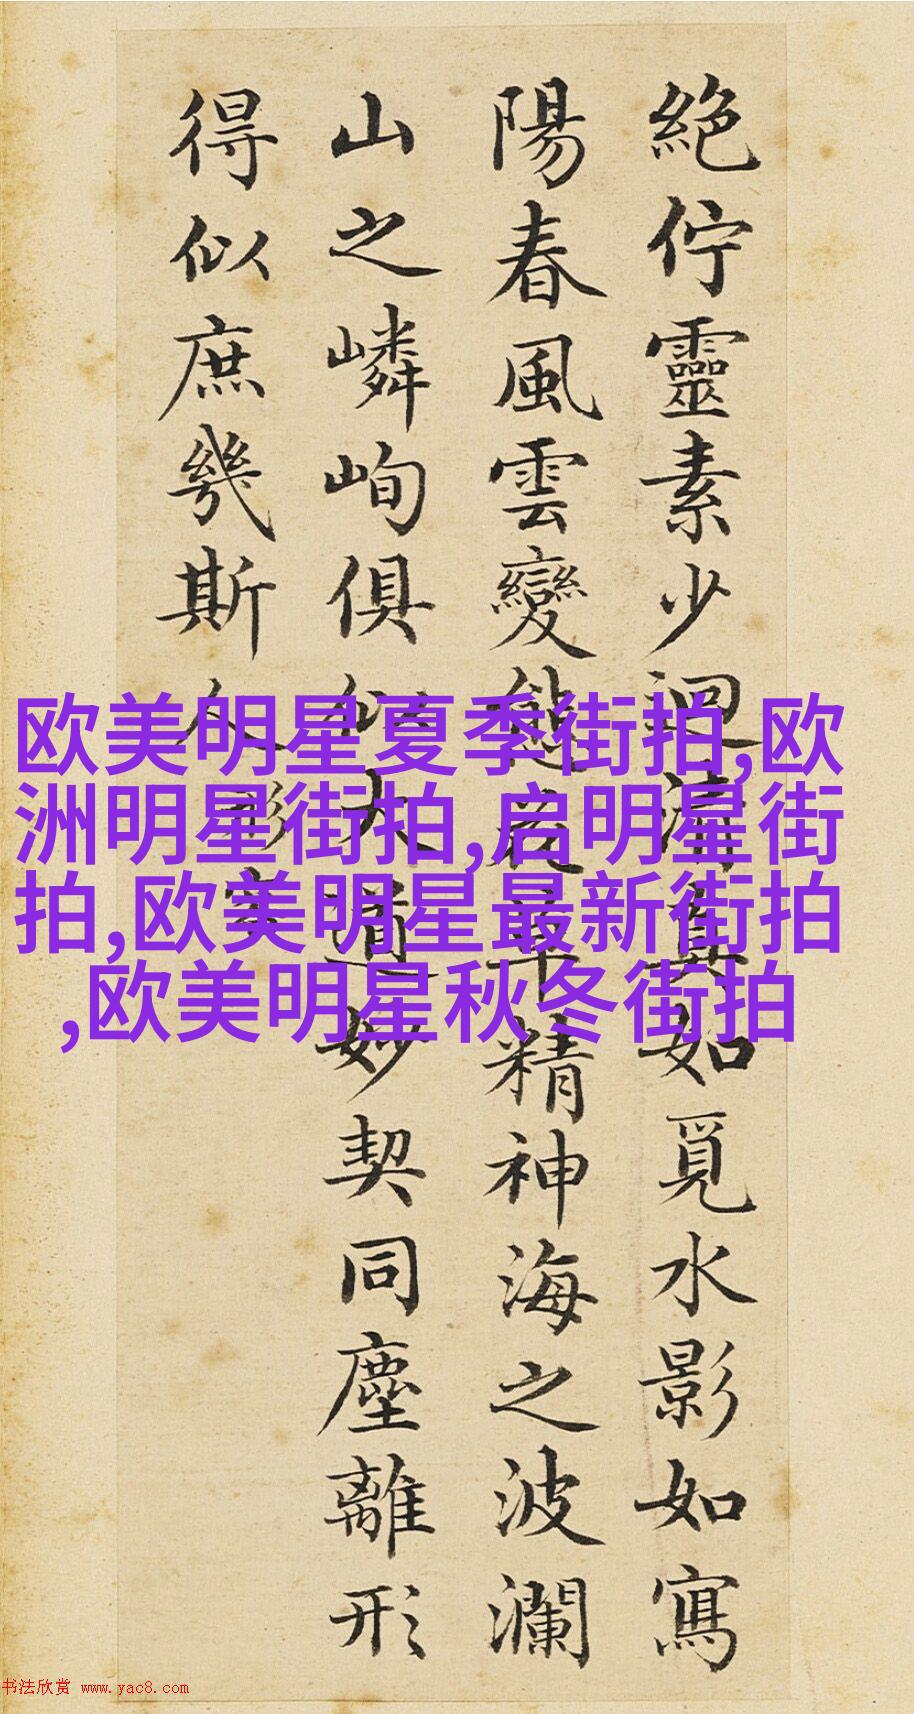 絕佇靈素少迴清真如覓水影如寫
陽春風雲變態花草精神海之波瀾
山之嶙峋俱似大道妙契同塵離形
得似庶幾斯人
欧美明星夏季街拍,欧
洲明星街拍,启明星街
拍,欧美明星最新街拍
,欧美明星秋冬街拍
书法欣赏 www.yac8.com